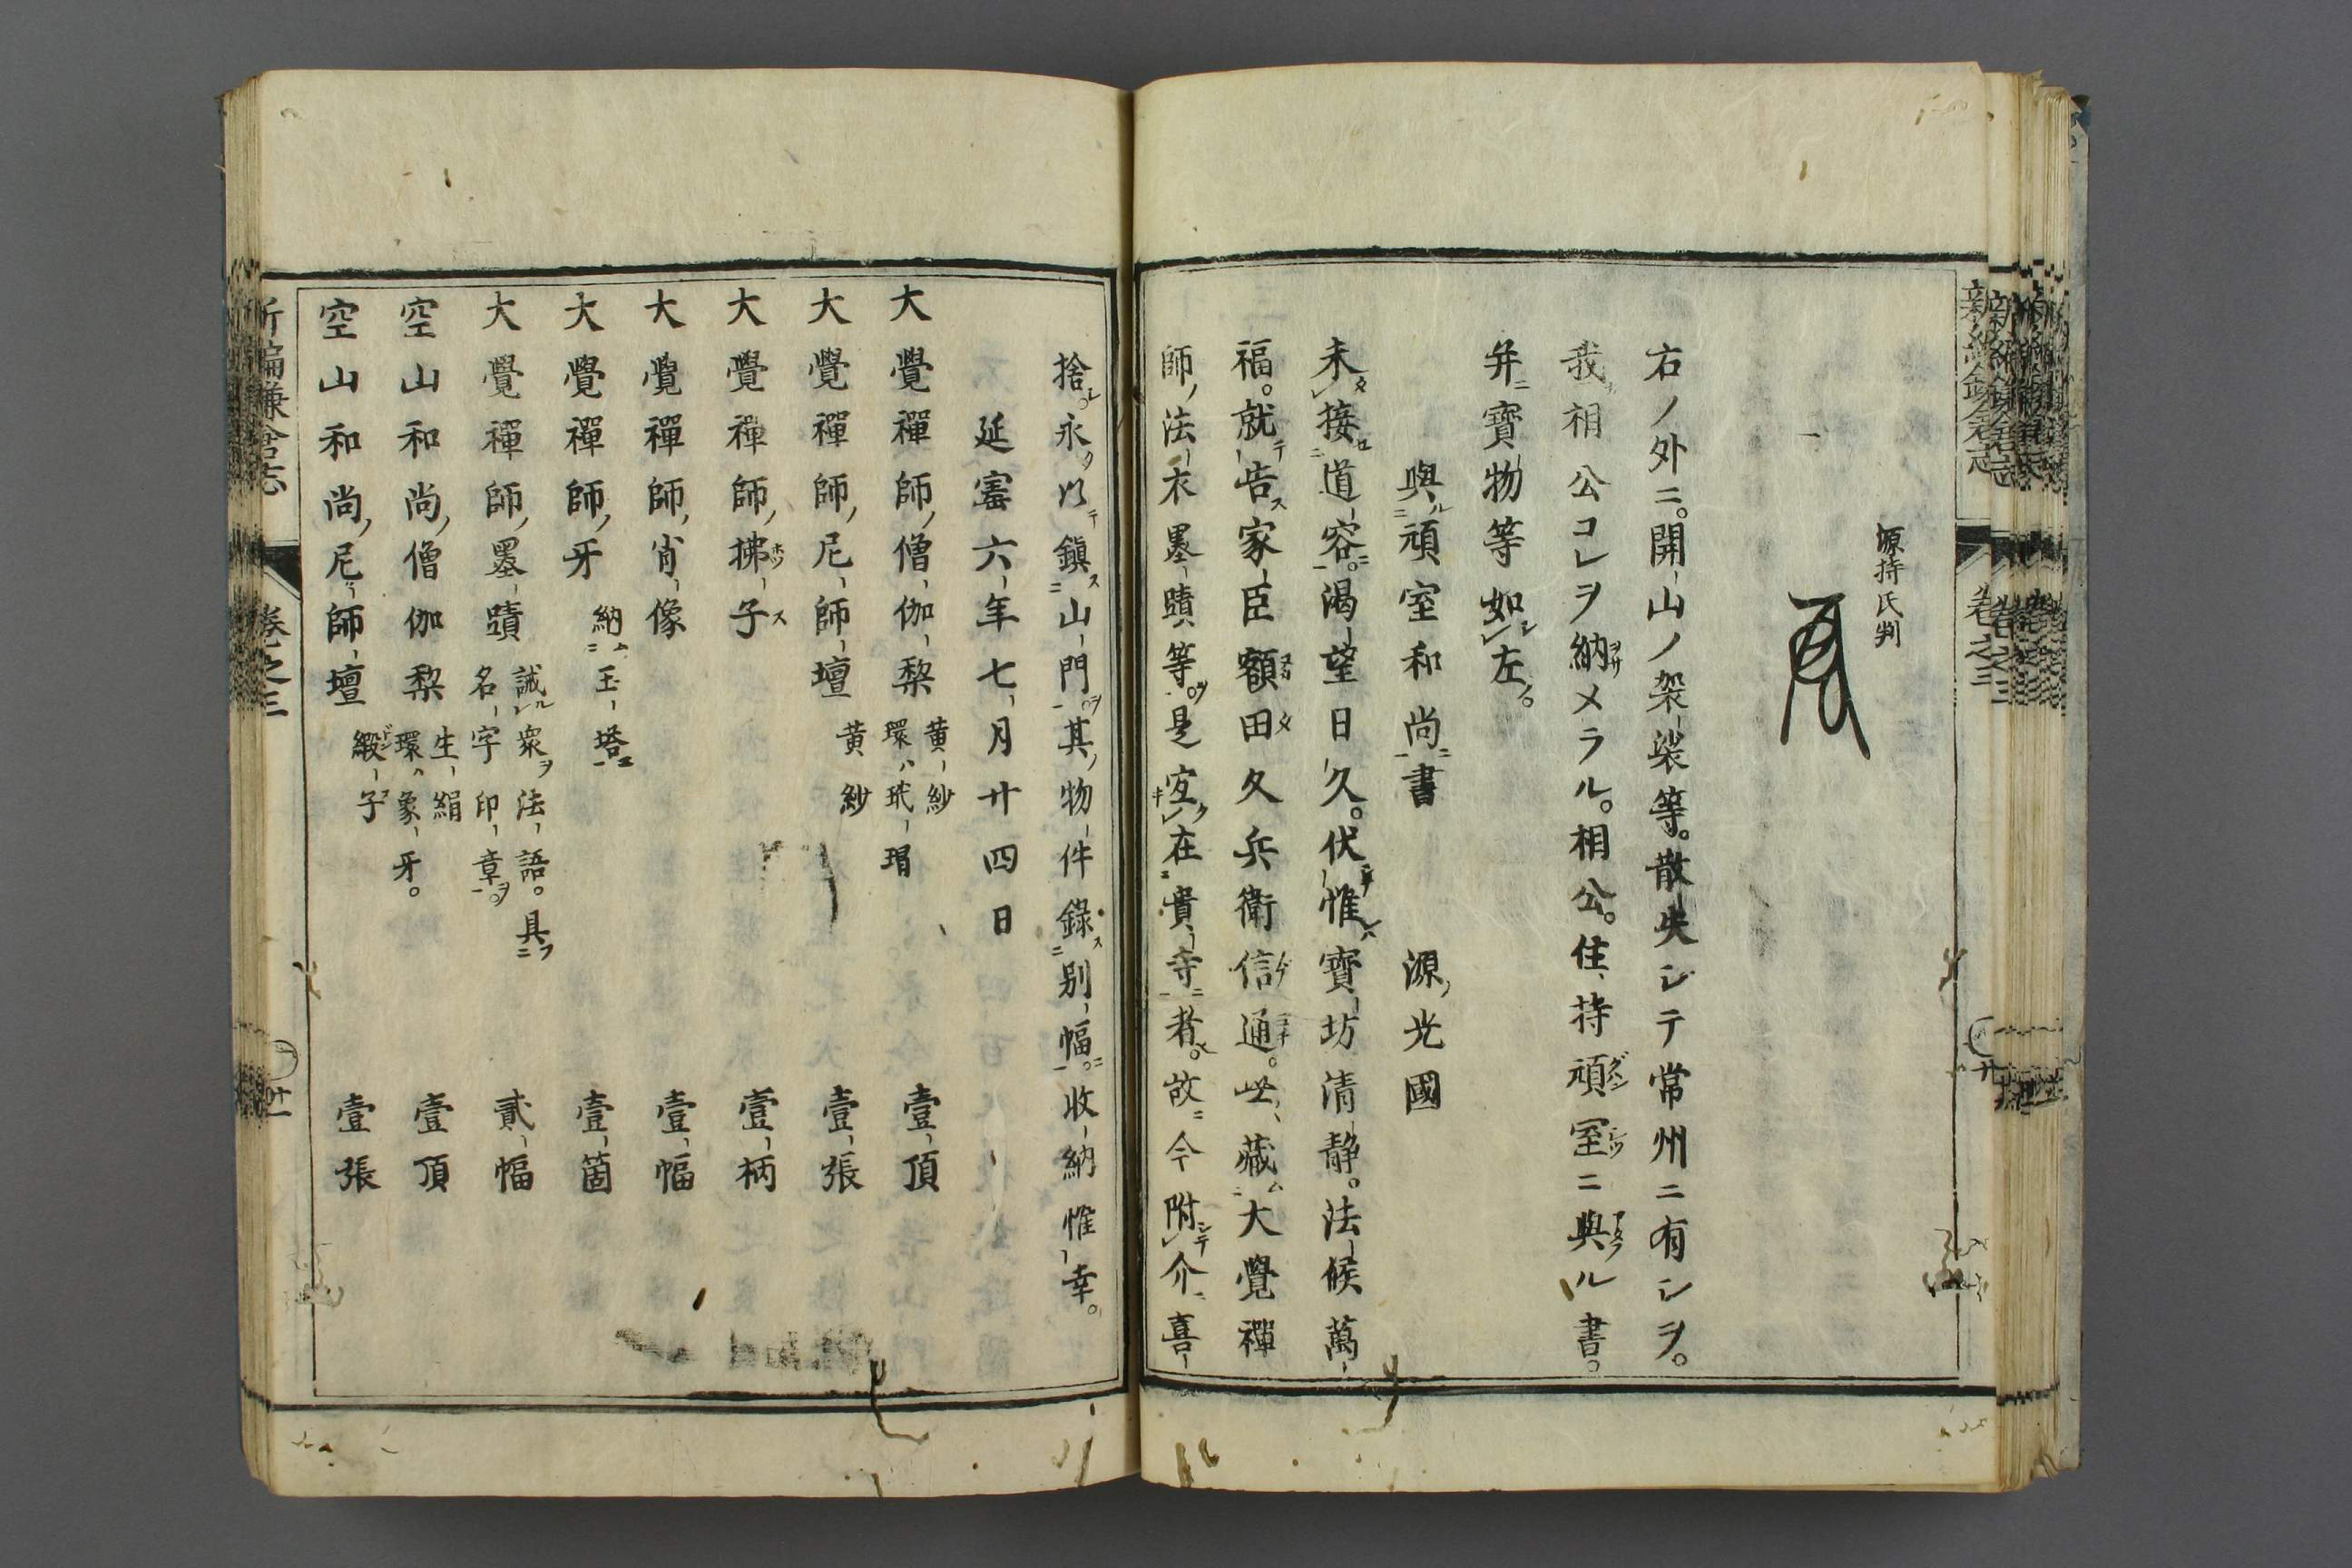 源持氏判
右ノ外ニ。開山ノ袈裟等。散失シテ常州ニ有シヲ。
我相公コレヲ納メラル。相公。住持頑室ニ與ル書。
弁寶物等如左。
與頑室和尚書　源光國
未接道容。渴望日久。伏惟寶坊清靜。法候萬
福。就告家臣額田久兵衛信通。世藏大覺禪
師法衣墨蹟等。是宐在貴寺者。故今附介喜
捨。永以鎭山門。其物件錄別幅。收納惟幸。
延寶六年七月廿四日
大覺禪師僧伽梨　黄紗　環ハ玳瑁　壹頂
大覺禪師尼師壇　黄紗　壹張
大覺禪師拂子　壹柄
大覺禪師肖像　壹幅
大覺禪師牙　納玉塔　壹箇
大覺禪師墨蹟　誡衆法語。具名字印章。　貳幅
空山和尚僧伽梨　生絹　環ハ象牙。　壹頂
空山和尚尼師壇　緞子　壹張
新編鎌倉志　卷之三　廿
新編鎌倉志　卷之三　廿一